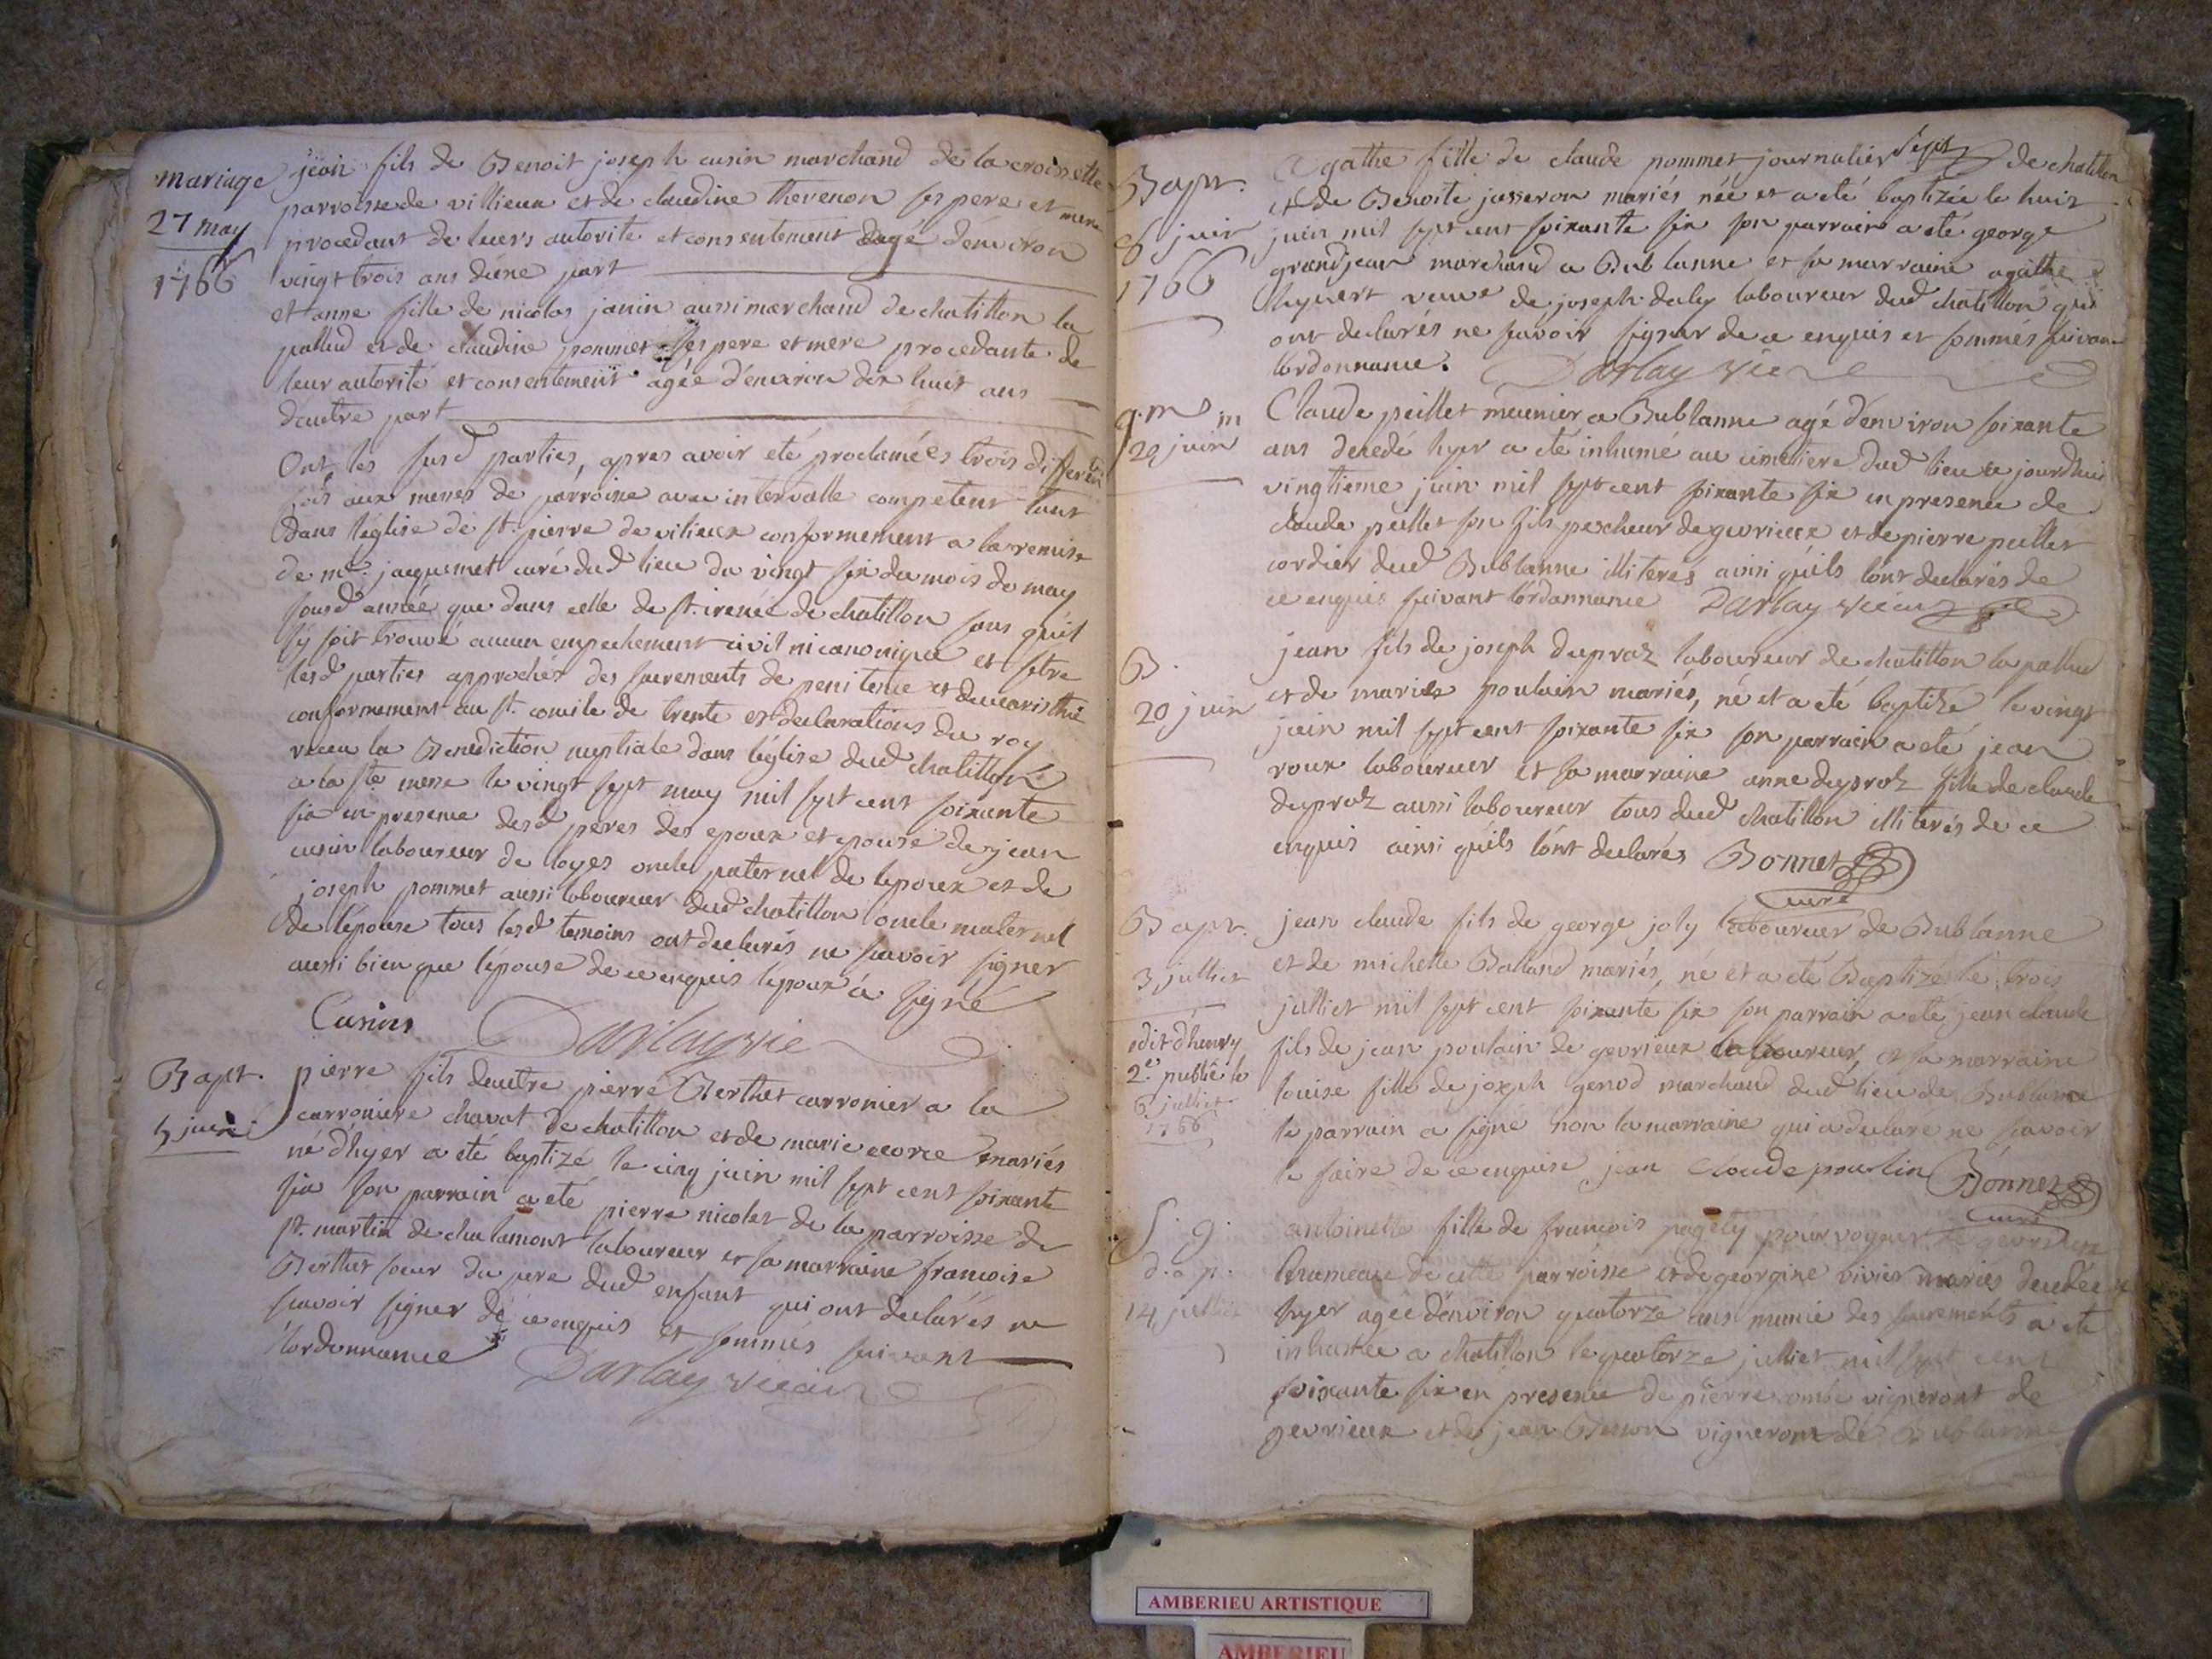 mariage
27 may
1766
jean fils de Benoit joseph cusin marchand de la croisette
parroisse de villieux et de claudine thevenon ses pere et mere
procedant de leurs autorite et consentement agé d'environ
vingt trois ans d'une part
et anne fille de nicolas janin aussi marchand de chatillon la
pallud et de claudine pommet ses pere et mere procedante de
leur autorité et consentement agée d'environ dix huit ans
d'autre part
Ont les susd parties, apres avoir eté proclamées trois differentes
fois aux messes de parroisse avec intervalle competent tant
dans l'église de st. pierre de vilieux conformement a la remise
de mre. jaquemet curé dud lieu du vingt six du mois de may
susd année que dans celle de st. irenée de chatillon sans quil
sÿ soit trouvé aucun empechement civil ni canonique et s'etre
lesd parties approchés des sacrements de penitence et deucaristhie
conformement au st. concile de trente et declarations du roy
receu la Benediction nuptiale dans l'église dud chatillon
a la ste messe le vingt sept may mil sept cent soixante
six en presence desd peres des epoux et epouse de jean
cusin laboureur de loyes oncle paternel de lepoux et de
joseph pommet aussi laboureur dud chatillon oncle maternel
de l'épouse tous lesd temoins ont declarés ne scavoir signer
aussi bien que lepouse de ce enquis lepoux a signé
Cusin Darlay vic
Bapt.
5 juin
pierre fils dautre pierre Berthet carronier a la
carroniere chavat de chatillon et de marie mariés
né d'hyer a eté baptizé le cinq juin mil sept cent soixante
six son parrain a eté pierre nicolet de la parroisse de
st. martin de chalamont laboureur et sa marraine francoise
Berthet soeur du pere dud enfant qui ont declarés ne
scavoir signer de ce enquis et sommés suivant
l'ordonnance Darlay vicaire
Bapt.
8 juin
1766
Agathe fille de claude pommet journalier de chatillon
et de Benoite jasseron mariés née et a eté baptizée le huit
juin mil sept cent soixante six son parrain a eté george
grandjean marchand a Bublanne et sa marraine agathe
veuve de joseph daly laboureur dud chatillon qui
ont declarés ne scavoir signer de ce enquis et sommés suivant
lordonnance. Darlay vic
20 juin
Claude peillet meunier a Bublanne agé d'environ soixante
ans decedé hyer a eté inhumé au cimetiere dud lieu ce jourdhui
vingtieme juin mil sept cent soixante six en presence de
claude peillet son fils pescheur de gevrieux et de pierre peillet
cordier dud Bublanne illiterés ainsi qu'ils l'ont declarés de
ce enquis suivant l'ordonnance Darlay vicaire
B.
20 juin
jean fils de joseph dupraz laboureur de chatillon la pallud
et de marie poulain mariés, né et a eté baptizé le vingt
juin mil sept cent soixante six son parrain a eté jean
roux laboureur et sa marraine anne duproz fille de claude
duproz aussi laboureur tous dud chatillon illiterés de ce
enquis ainsi qu'ils l'ont declarés Bonnet
curé
Bapt.
3 julliet
jean claude fils de george joly laboureur de Bublanne
et de michelle Balland mariés, né et a eté Baptizé le trois
julliet mil sept cent soixante six son parrain a eté jean claude
fils de jean poulain de gevrieux laboureur, et sa marraine
louise fille de joseph genod marchand dud lieu de Bublanne
le parrain a signé non la marraine qui a declaré ne scavoir
le faire de ce enquise jean Claude poulin Bonnet
curé
edit d'henry
2.e publié le
6 julliet
1766
14 julliet
antoinette fille de francois pour vogner de gevrieux
hameau de cette parroisse et de georgine vivier mariés decedée
hyer agée d'environ quatorze ans munie des sacrements a eté
inhumée a chatillon le quatorze julliet mil sept cent
soixante six en presence de pierre combe vigneront de
gevrieux et de jean Besson vigneront de Bublanne
AMBERIEU ARTISTIQUE
AMBERIEU